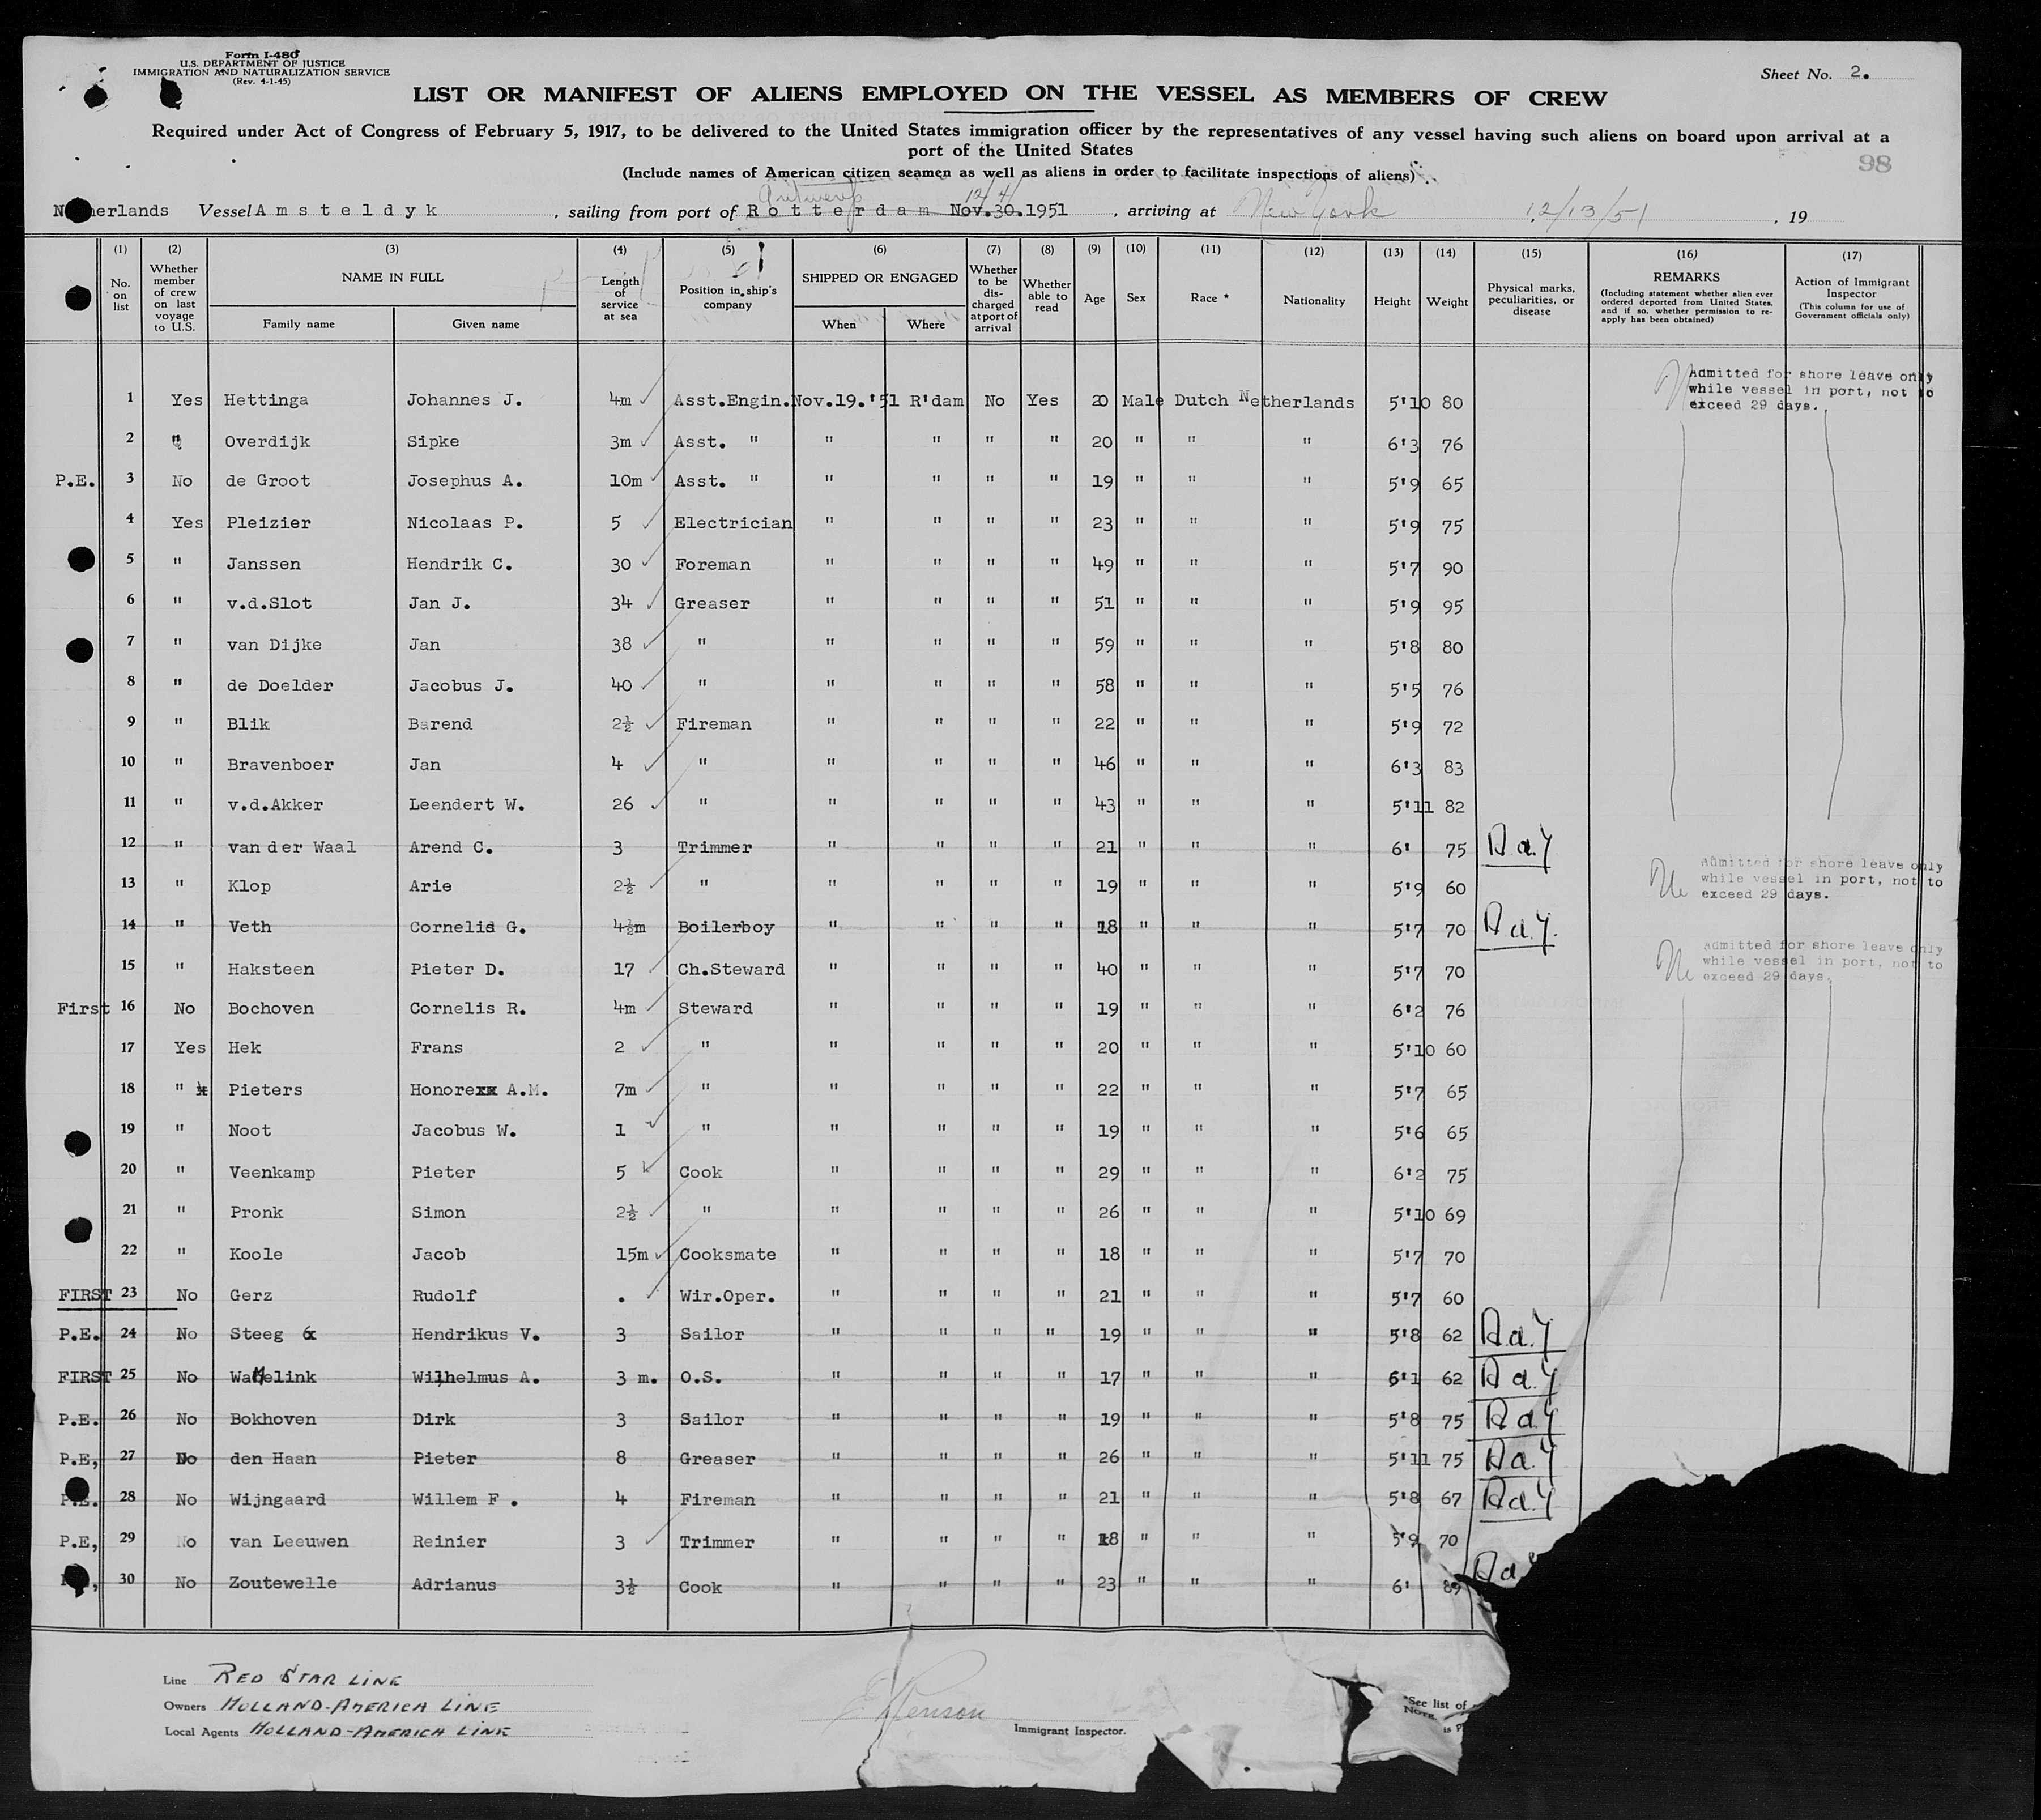 Form I-480
U.S. DEPARTMENT OF JUSTICE
IMMIGRATION AND NATURALIZATION SERVICE
(Rev. 4-1-45)
Sheet No. 2.
LIST OR MANIFEST OF ALIENS EMPLOYED ON THE VESSEL AS MEMBERS OF CREW
Required under Act of Congress of February 5, 1917, to be delivered to the United States immigration officer by the representatives of any vessel having such aliens on board upon arrival at a
port of the United States
98
(Include names of American citizen seamen as well as aliens in order to facilitate inspections of aliens)
Antwerp 12/4/
Netherlands Vessel Amsteldyk , sailing from port of Rotterdam Nov.30.1951 , arriving at New York 12/13/51 , 19
(1) (2) (3) (4) (5) (6) (7) (8) (9) (10) (11) (12) (13) (14) (15) (16) (17)
No. on list
Whether member of crew on last voyage to U.S.
NAME IN FULL
Family name Given name
Length of service at sea
Position in ship's company
SHIPPED OR ENGAGED
When Where
Whether to be discharged at port of arrival
Whether able to read
Age
Sex
Race *
Nationality
Height
Weight
Physical marks, peculiarities, or disease
REMARKS
(Including statement whether alien ever ordered deported from United States, and if so, whether permission to re-apply has been obtained)
Action of Immigrant Inspector
(This column for use of Government officials only)
1 Yes Hettinga Johannes J. 4m Asst.Engin. Nov.19.'51 R'dam No Yes 20 Male Dutch Netherlands 5'10 80 Admitted for shore leave only while vessel in port, not to exceed 29 days.
2 " Overdijk Sipke 3m Asst. " " " " " 20 " " " 6'3 76
P.E. 3 No de Groot Josephus A. 10m Asst. " " " " " 19 " " " 5'9 65
4 Yes Pleizier Nicolaas P. 5 Electrician " " " " 23 " " " 5'9 75
5 " Janssen Hendrik C. 30 Foreman " " " " 49 " " " 5'7 90
6 " v.d.Slot Jan J. 34 Greaser " " " " 51 " " " 5'9 95
7 " van Dijke Jan 38 " " " " " 59 " " " 5'8 80
8 " de Doelder Jacobus J. 40 " " " " " 58 " " " 5'5 76
9 " Blik Barend 2½ Fireman " " " " 22 " " " 5'9 72
10 " Bravenboer Jan 4 " " " " " 46 " " " 6'3 83
11 " v.d.Akker Leendert W. 26 " " " " " 43 " " " 5'11 82
12 " van der Waal Arend C. 3 Trimmer " " " " 21 " " " 6' 75
13 " Klop Arie 2½ " " " " " 19 " " " 5'9 60 Admitted for shore leave only while vessel in port, not to exceed 29 days.
14 " Veth Cornelis G. 4½m Boilerboy " " " " 18 " " " 5'7 70
15 " Haksteen Pieter D. 17 Ch.Steward " " " " 40 " " " 5'7 70 Admitted for shore leave only while vessel in port, not to exceed 29 days.
First 16 No Bochoven Cornelis R. 4m Steward " " " " 19 " " " 6'2 76
17 Yes Hek Frans 2 " " " " " 20 " " " 5'10 60
18 " Pieters Honorexx A.M. 7m " " " " " 22 " " " 5'7 65
19 " Noot Jacobus W. 1 " " " " " 19 " " " 5'6 65
20 " Veenkamp Pieter 5 Cook " " " " 29 " " " 6'2 75
21 " Pronk Simon 2½ " " " " " 26 " " " 5'10 69
22 " Koole Jacob 15m Cooksmate " " " " 18 " " " 5'7 70
FIRST 23 No Gerz Rudolf . Wir.Oper. " " " " 21 " " " 5'7 60
P.E. 24 No Steeg Hendrikus V. 3 Sailor " " " " 19 " " " 5'8 62
FIRST 25 No Wilhelmus A. 3 m. O.S. " " " " 17 " " " 6'1 62
P.E. 26 No Bokhoven Dirk 3 Sailor " " " " 19 " " " 5'8 75
P.E, 27 No den Haan Pieter 8 Greaser " " " " 26 " " " 5'11 75
P.E. 28 No Wijngaard Willem F . 4 Fireman " " " " 21 " " " 5'8 67
P.E, 29 No van Leeuwen Reinier 3 Trimmer " " " " 18 " " " 5'9 70
30 No Zoutewelle Adrianus 3½ Cook " " " " 23 " " " 6' 89
Line RED STAR LINE
Owners HOLLAND-AMERICA LINE
Local Agents HOLLAND-AMERICA LINE
Immigrant Inspector.
*See list of
NOTE.
is